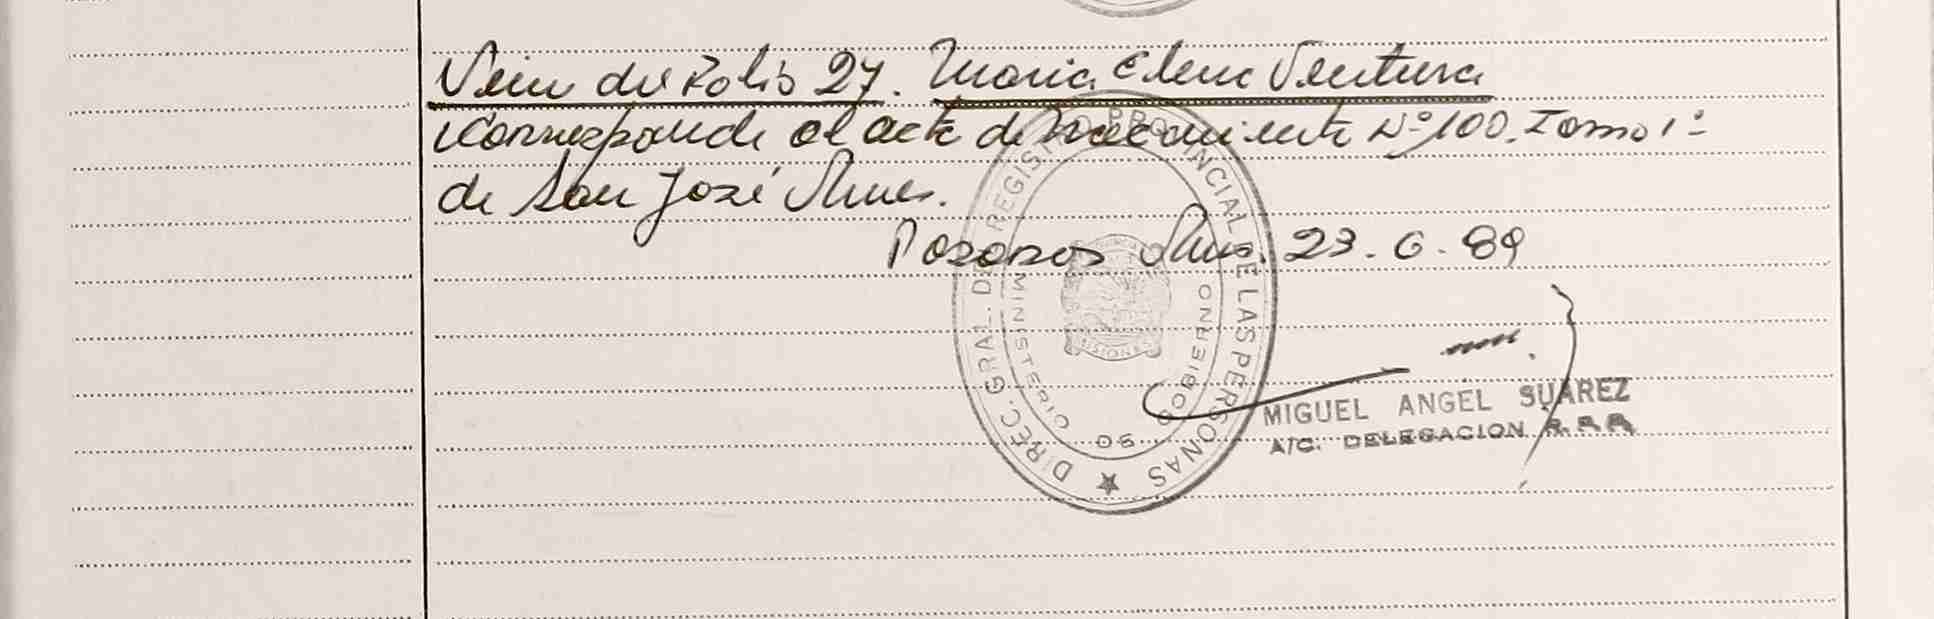 Viene del Folio 27. Maria Elena Ventura
Corresponde al acta de Nacimiento Nº 100. Tomo 1º
de San José Mnes.
Posadas Mnes. 23.6.89
DIREC. GRAL. DE REGISTRO PROVINCIAL DE LAS PERSONAS
MINISTERIO DE GOBIERNO
MISIONES
MIGUEL ANGEL SUAREZ
A/C. DELEGACION R.P.P.